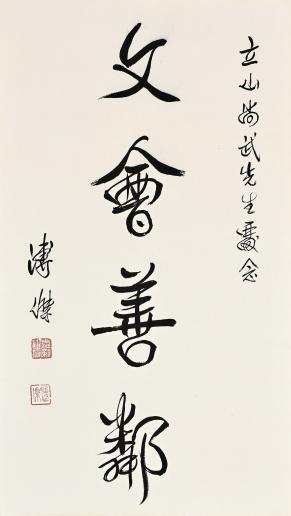 立山尚武先生霎念
文會善鄰
溥傑